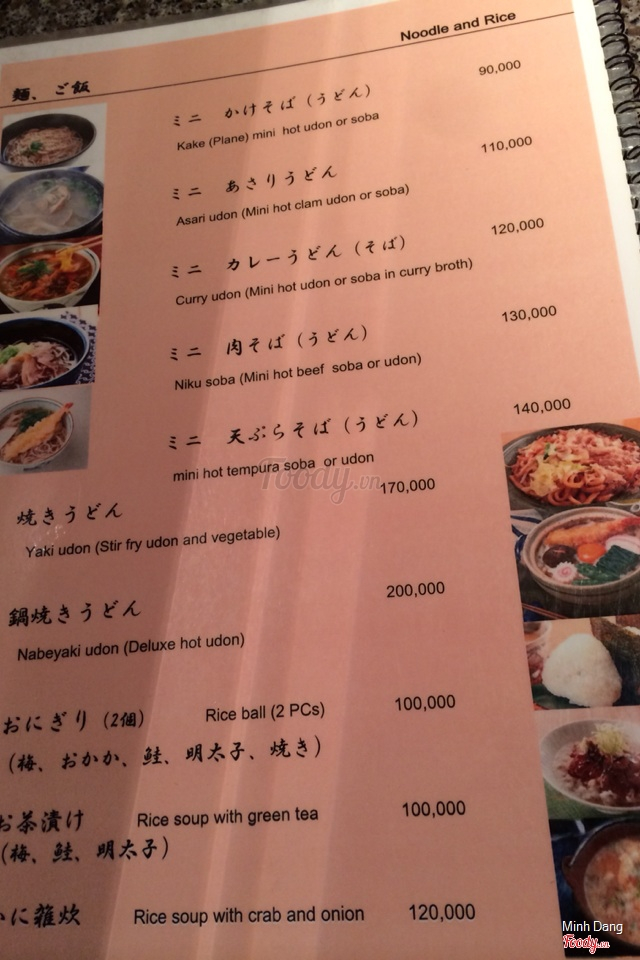 Noodle and Rice
麺、ご飯
ミニ かけそば(うどん) 90,000
Kake (Plane) mini hot udon or soba
ミニ あさりうどん 110,000
Asari udon (Mini hot clam udon or soba)
ミニ カレーうどん(そば) 120,000
Curry udon (Mini hot udon or soba in curry broth)
ミニ 肉そば(うどん) 130,000
Niku soba (Mini hot beef soba or udon)
ミニ 天ぷらそば(うどん) 140,000
mini hot tempura soba or udon
焼きうどん 170,000
Yaki udon (Stir fry udon and vegetable)
鍋焼きうどん 200,000
Nabeyaki udon (Deluxe hot udon)
おにぎり(2個) Rice ball (2 PCs) 100,000
(梅、おかか、鮭、明太子、焼き)
お茶漬け Rice soup with green tea 100,000
(梅、鮭、明太子)
かに雑炊 Rice soup with crab and onion 120,000
Foody.vn
Minh Dang
Foody.vn